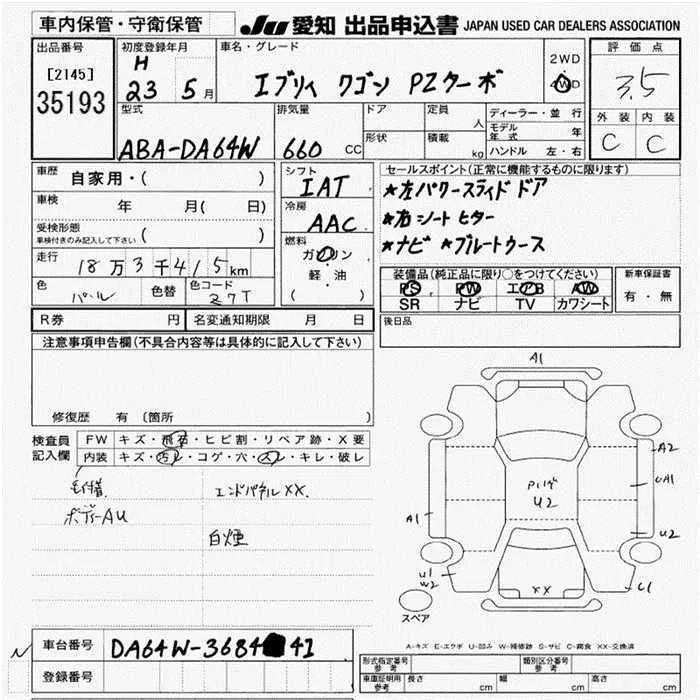 車内保管・守衛保管
JU 愛知 出品申込書 JAPAN USED CAR DEALERS ASSOCIATION
出品番号
[2145]
35193
初度登録年月
H
23 5月
車名・グレード
エブリィ ワゴン PZターボ
2WD
4WD
評価点
3.5
外装 内装
C C
型式
ABA-DA64W
排気量
660 CC
ドア
形状
定員
人
積載
kg
ディーラー・並行
モデル年式 年
ハンドル 左・右
車歴
自家用・( )
車検
年 月( 日)
受検形態
車検付きのみ記入して下さい ( )
走行
18万3千415km
色
パール
色替
色コード
Z7T
シフト
IAT
冷房
AAC
燃料
ガソリン
軽・油
( )
セールスポイント(正常に機能するものに限ります)
★左パワースライドドア
★右シートヒター
★ナビ ★ブルートゥース
装備品(純正品に限り○をつけてください)
PS PW エアB AW
SR ナビ TV カワシート
新車保証書
有・無
R券 円
名変通知期限 月 日
後日品
注意事項申告欄(不具合内容等は具体的に記入して下さい)
修復歴 有 (箇所 )
検査員
記入欄
FW キズ・飛石・ヒビ割・リペア跡・X要
内装 キズ・汚レ・コゲ・穴・スレ・キレ・破レ
ボデーAU
エンドパネルXX.
白煙
A1
A2
UA1
U2
A1
U2
U1
W2
XX
C1
スペア
A-キズ E-エクボ U-凹み W-補修跡 S-サビ C-腐食 XX-交換済
車台番号
DA64W-3684 41
登録番号
形式指定番号
参考
類別区分番号
参考
車庫証明用
参考
長さ cm
幅 cm
高さ cm